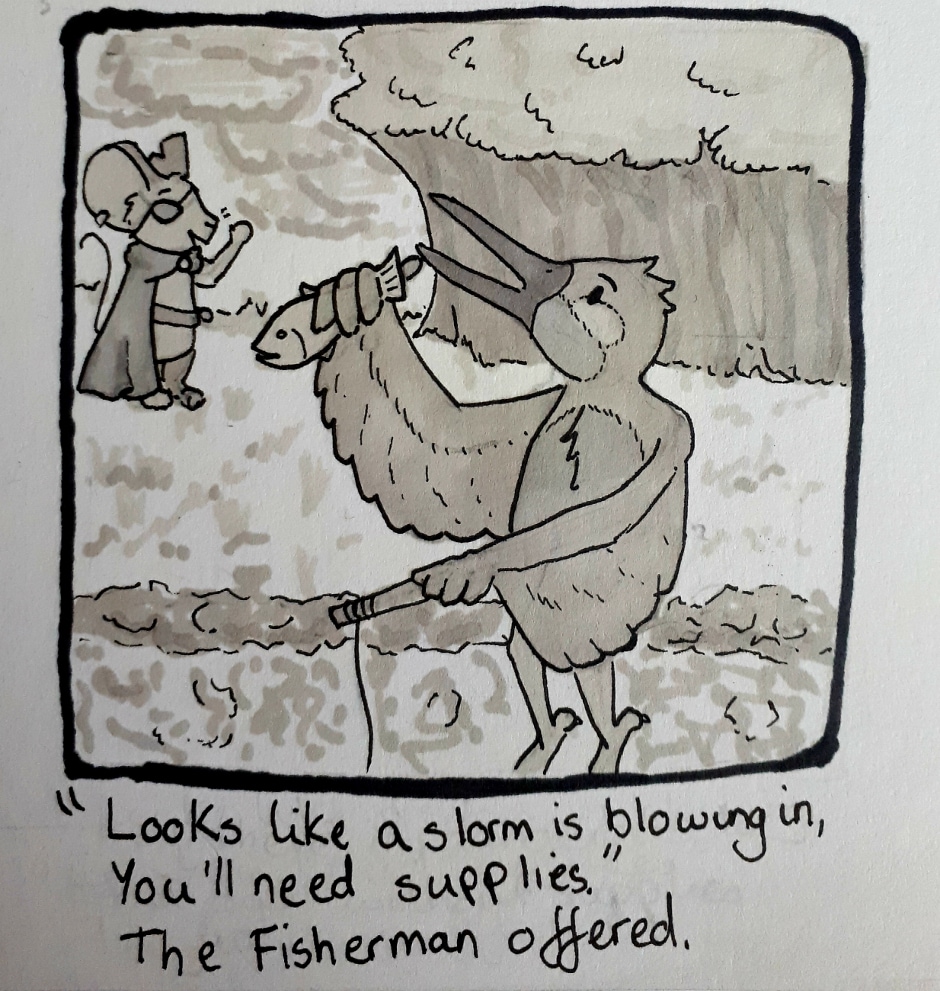 "Looks like a storm is blowing in,
You'll need supplies."
The Fisherman offered.